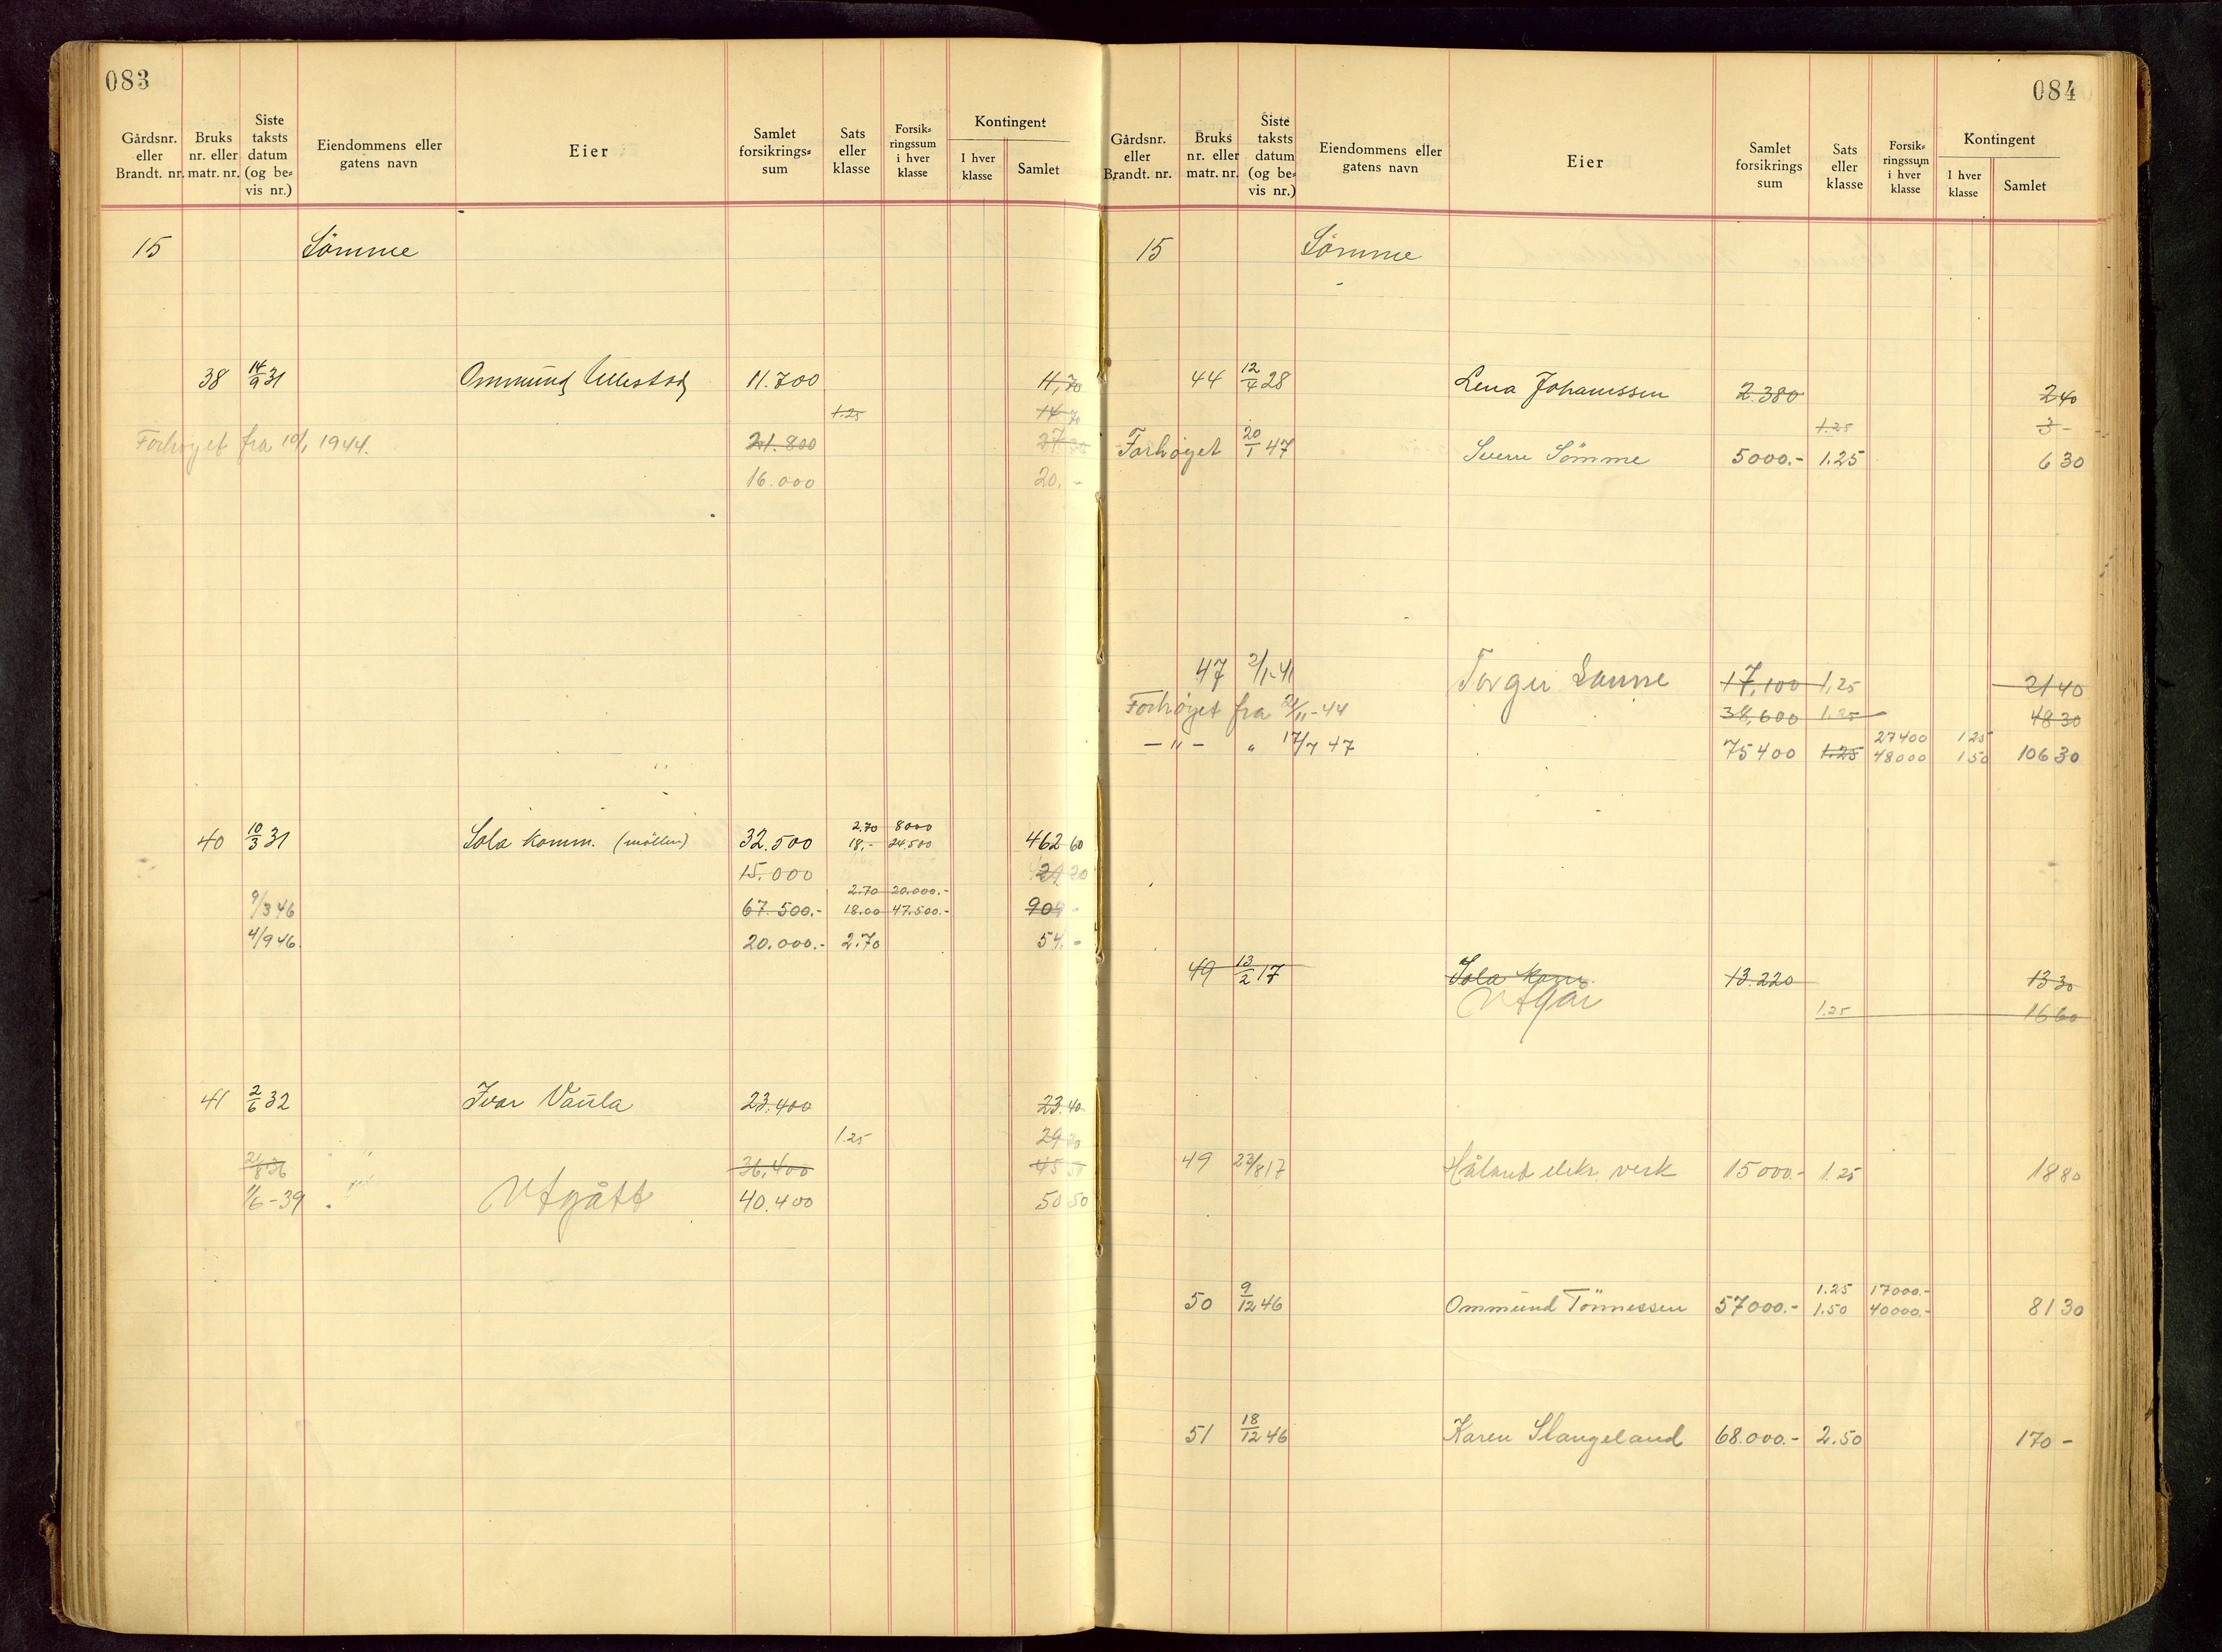 083
Gårdsnr. eller Brandt. nr. Bruks nr. eller matr. nr. Siste taksts datum (og be= vis nr.) Eiendommens eller gatens navn Eier Samlet forsikrings= sum Sats eller klasse Forsik= ringssum i hver klasse Kontingent I hver klasse Samlet
15 Sömme
38 14/9 31 Ommund Ullestad 11.700 11,70
1.25 14 70
Forhøyet fra 10/1 1944. 21.800
16.000 20.-
40 10/3 31 Sola komm. (möllen) 32.500 2.70 8000 462 60
18,- 24.500
15.000 20
2.70 20.000.-
9/3 46 67.500.- 18.00 47.500.- 909 -
4/9 46 20.000.- 2.70 54.-
41 2/6 32 Ivar Vaula 23.400 23.40
1.25 29 30
21/8 36 36,400 45 50
1/6-39 Utgått 40.400 50 50
084
Gårdsnr. eller Brandt. nr. Bruks nr. eller matr. nr. Siste taksts datum (og be= vis nr.) Eiendommens eller gatens navn Eier Samlet forsikrings sum Sats eller klasse Forsik= ringssum i hver klasse Kontingent I hver klasse Samlet
15 Sömme
44 12/4 28 Lena Johannssen 2.380 2 40
1.25 3 -
Forhøyet 20/1 47 Sverre Sömme 5000.- 1.25 6 30
47 2/1-41 Torger Sømme 17,100 1,25 21 40
Forhøyet fra 21/11-44 38,600 1.25 48 30
27400 1 25
-"- " 17/7 47 75400 1.25 48000 1 50 106 30
49 13/2 17 Sola kom. 13.220 13 30
Utgår 1.25 16 60
49 22/8 17 Håland elekr. verk 15000.- 1.25 18 80
1.25 17000.-
50 9/12 46 Ommund Tönnessen 57000.- 1.50 40000.- 81 30
51 18/12 46 Karen Slangeland 68.000.- 2.50 170 -